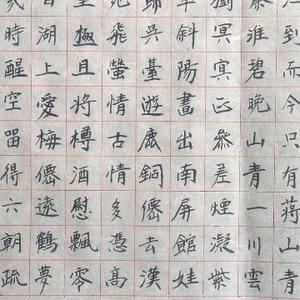 到而今只有蔣山青
淮碧晚山青一川雲
冥冥正參差煙凝紫
斜陽畫出南屏館娃
歸吳臺遊鹿銅僊去漢
飛螢情古情多憑高
極且將樽酒慰飄零
湖上愛梅僊遠鶴夢
時醒空留得六朝疏